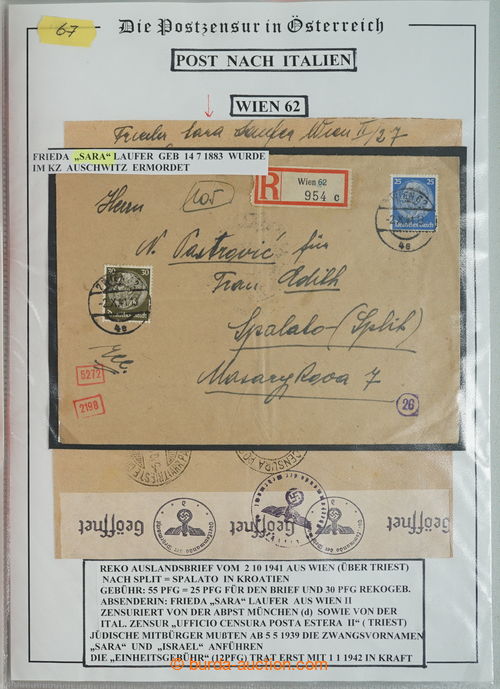 67
Die Postzensur in Österreich
POST NACH ITALIEN
WIEN 62
Frieda Sara Laufer Wien II/27
FRIEDA „SARA“ LAUFER GEB 14 7 1883 WURDE
IM KZ AUSCHWITZ ERMORDET
R
Wien 62
954 c
25 25
Deutsches Reich
Herrn
N. Pastrović für
Frau Edith
30 30
Deutsches Reich
Spalato (Split)
7
5272
2198
26
CENSURA
Geöffnet
Geöffnet
Geöffnet
REKO AUSLANDSBRIEF VOM 2 10 1941 AUS WIEN (ÜBER TRIEST)
NACH SPLIT = SPALATO IN KROATIEN
GEBÜHR: 55 PFG = 25 PFG FÜR DEN BRIEF UND 30 PFG REKOGEB.
ABSENDERIN: FRIEDA „SARA“ LAUFER AUS WIEN II
ZENSURIERT VON DER ABPST MÜNCHEN (d) SOWIE VON DER
ITAL. ZENSUR „UFFICIO CENSURA POSTA ESTERA II“ ( TRIEST)
JÜDISCHE MITBÜRGER MUßTEN AB 5 5 1939 DIE ZWANGSVORNAMEN
„SARA“ UND „ISRAEL“ ANFÜHREN
DIE „EINHEITSGEBÜHR“ (12PFG) TRAT ERST MIT 1 1 1942 IN KRAFT
burda-auction.com